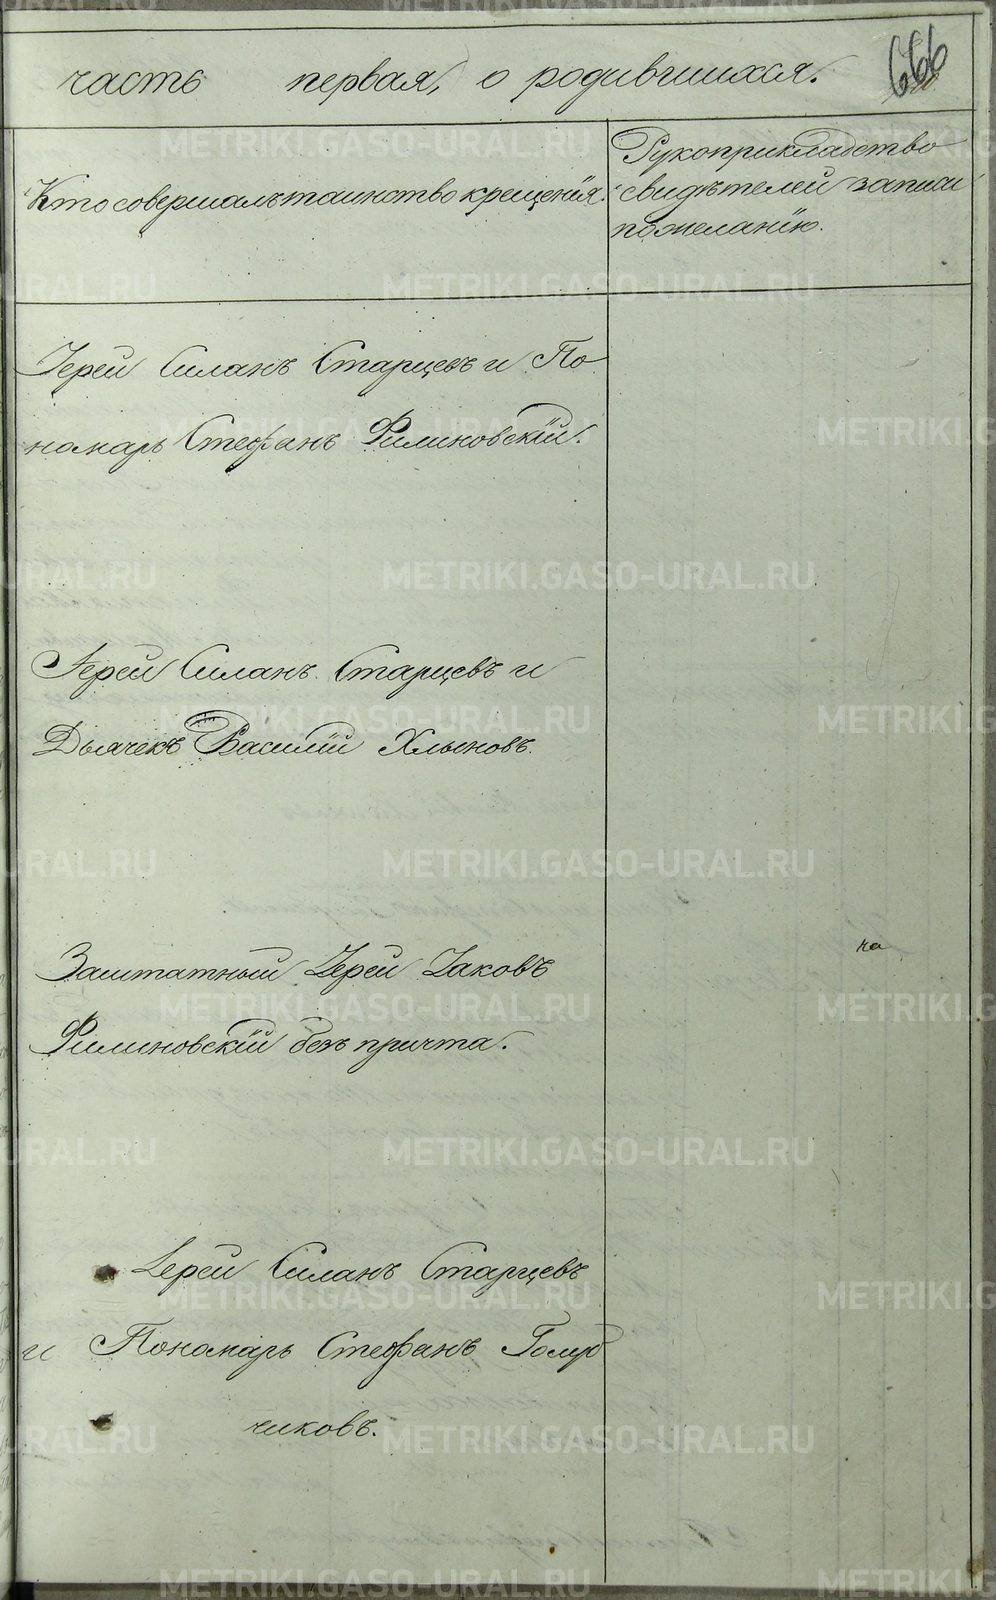 часть первая, о родившихся.
666
Кто совершалъ таинство крещенія.
Рукоприкладство
свидѣтелей записи
по желанію.
Іерей Силанъ Старцевъ и По
номарь Стефанъ Филиновскій.
Іерей Силанъ Старцевъ и
Дьячекъ Василій Хлыновъ.
Заштатный Іерей Іаковъ
Филиновскій безъ причта.
на
Іерей Силанъ Старцевъ
и Пономарь Стефанъ Голуб
чиковъ.
METRIKI.GASO-URAL.RU